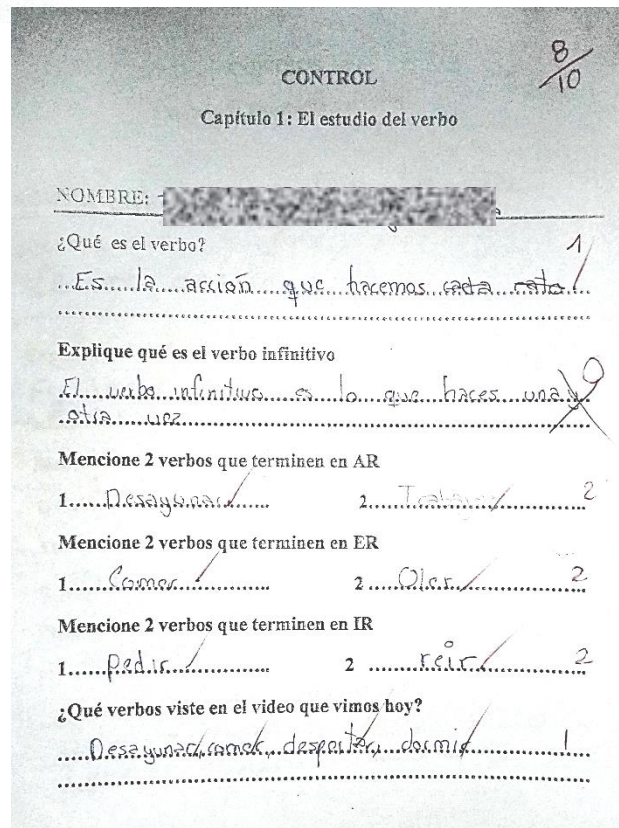 8/10
CONTROL
Capítulo 1: El estudio del verbo
NOMBRE:
¿Qué es el verbo?
Es la acción que hacemos cada rato 1
Explique qué es el verbo infinitivo
El verbo infinitivo es lo que haces una y 0
otra vez
Mencione 2 verbos que terminen en AR
1 Desayunar 2 2
Mencione 2 verbos que terminen en ER
1 Comer 2 Oler 2
Mencione 2 verbos que terminen en IR
1 pedir 2 reir 2
¿Qué verbos viste en el video que vimos hoy?
Desayunar, comer, despertar, dormir 1